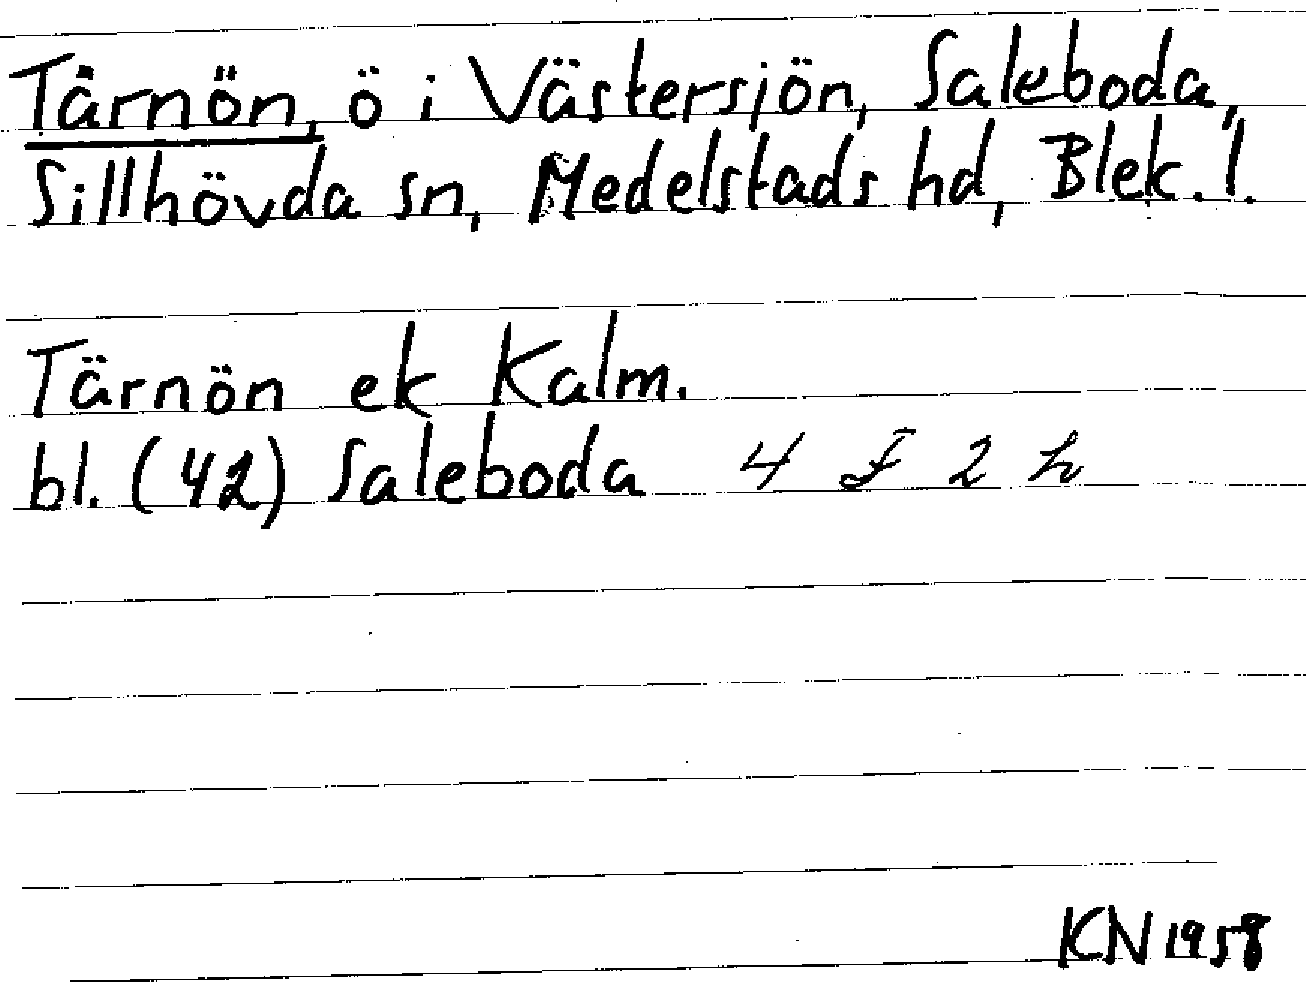 Tärnön, ö i Västersjön, Saleboda,
Sillhövda sn, Medelstads hd, Blek. l.
Tärnön ek Kalm.
bl. (42) Saleboda 4 F 2 h
KN 1958